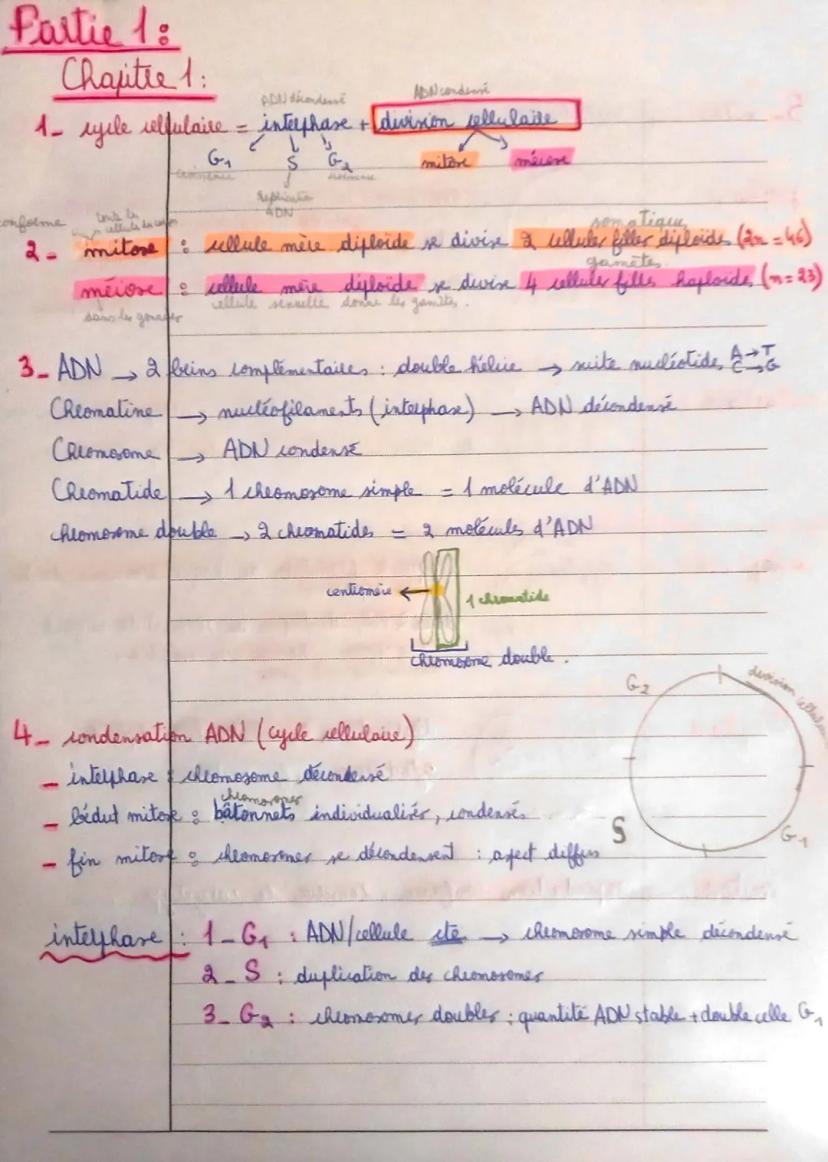 Partie 1:
Chapitre 1:
ADN décondensé ADN condensé
1- cycle cellulaire = interphase + division cellulaire
G1 S G2 mitose méiose
croissance
Replication
ADN
conforme toute les cellules du corps somatique
2- mitose : cellule mère diploïde se divise 2 cellules filles diploïdes (2n = 46)
gamètes
méiose : cellule mère diploïde se divise 4 cellules filles haploïdes (n = 23)
dans les gonades cellule sexuelle donne les gamètes.
3- ADN → 2 brins complémentaires : double hélice → suite nucléotides A→T C→G
Chromatine → nucléofilaments (interphase) → ADN décondensé
Chromosome → ADN condensé
Chromatide → 1 chromosome simple = 1 molécule d'ADN
chromosome double → 2 chromatides = 2 molécules d'ADN
centromère 1 chromatide
chromosome double.
G2 division cellulaire
4- condensation ADN (cycle cellulaire)
- interphase : chromosome décondensé
chromosomes
- bédut mitose : bâtonnets individualisés, condensés
S G1
- fin mitose : chromosomes se décondensent : aspect diffus
interphase : 1- G1 : ADN/cellule cte → chromosome simple décondensé
2- S : duplication des chromosomes
3- G2 : chromosomes doubles : quantité ADN stable + double celle G1